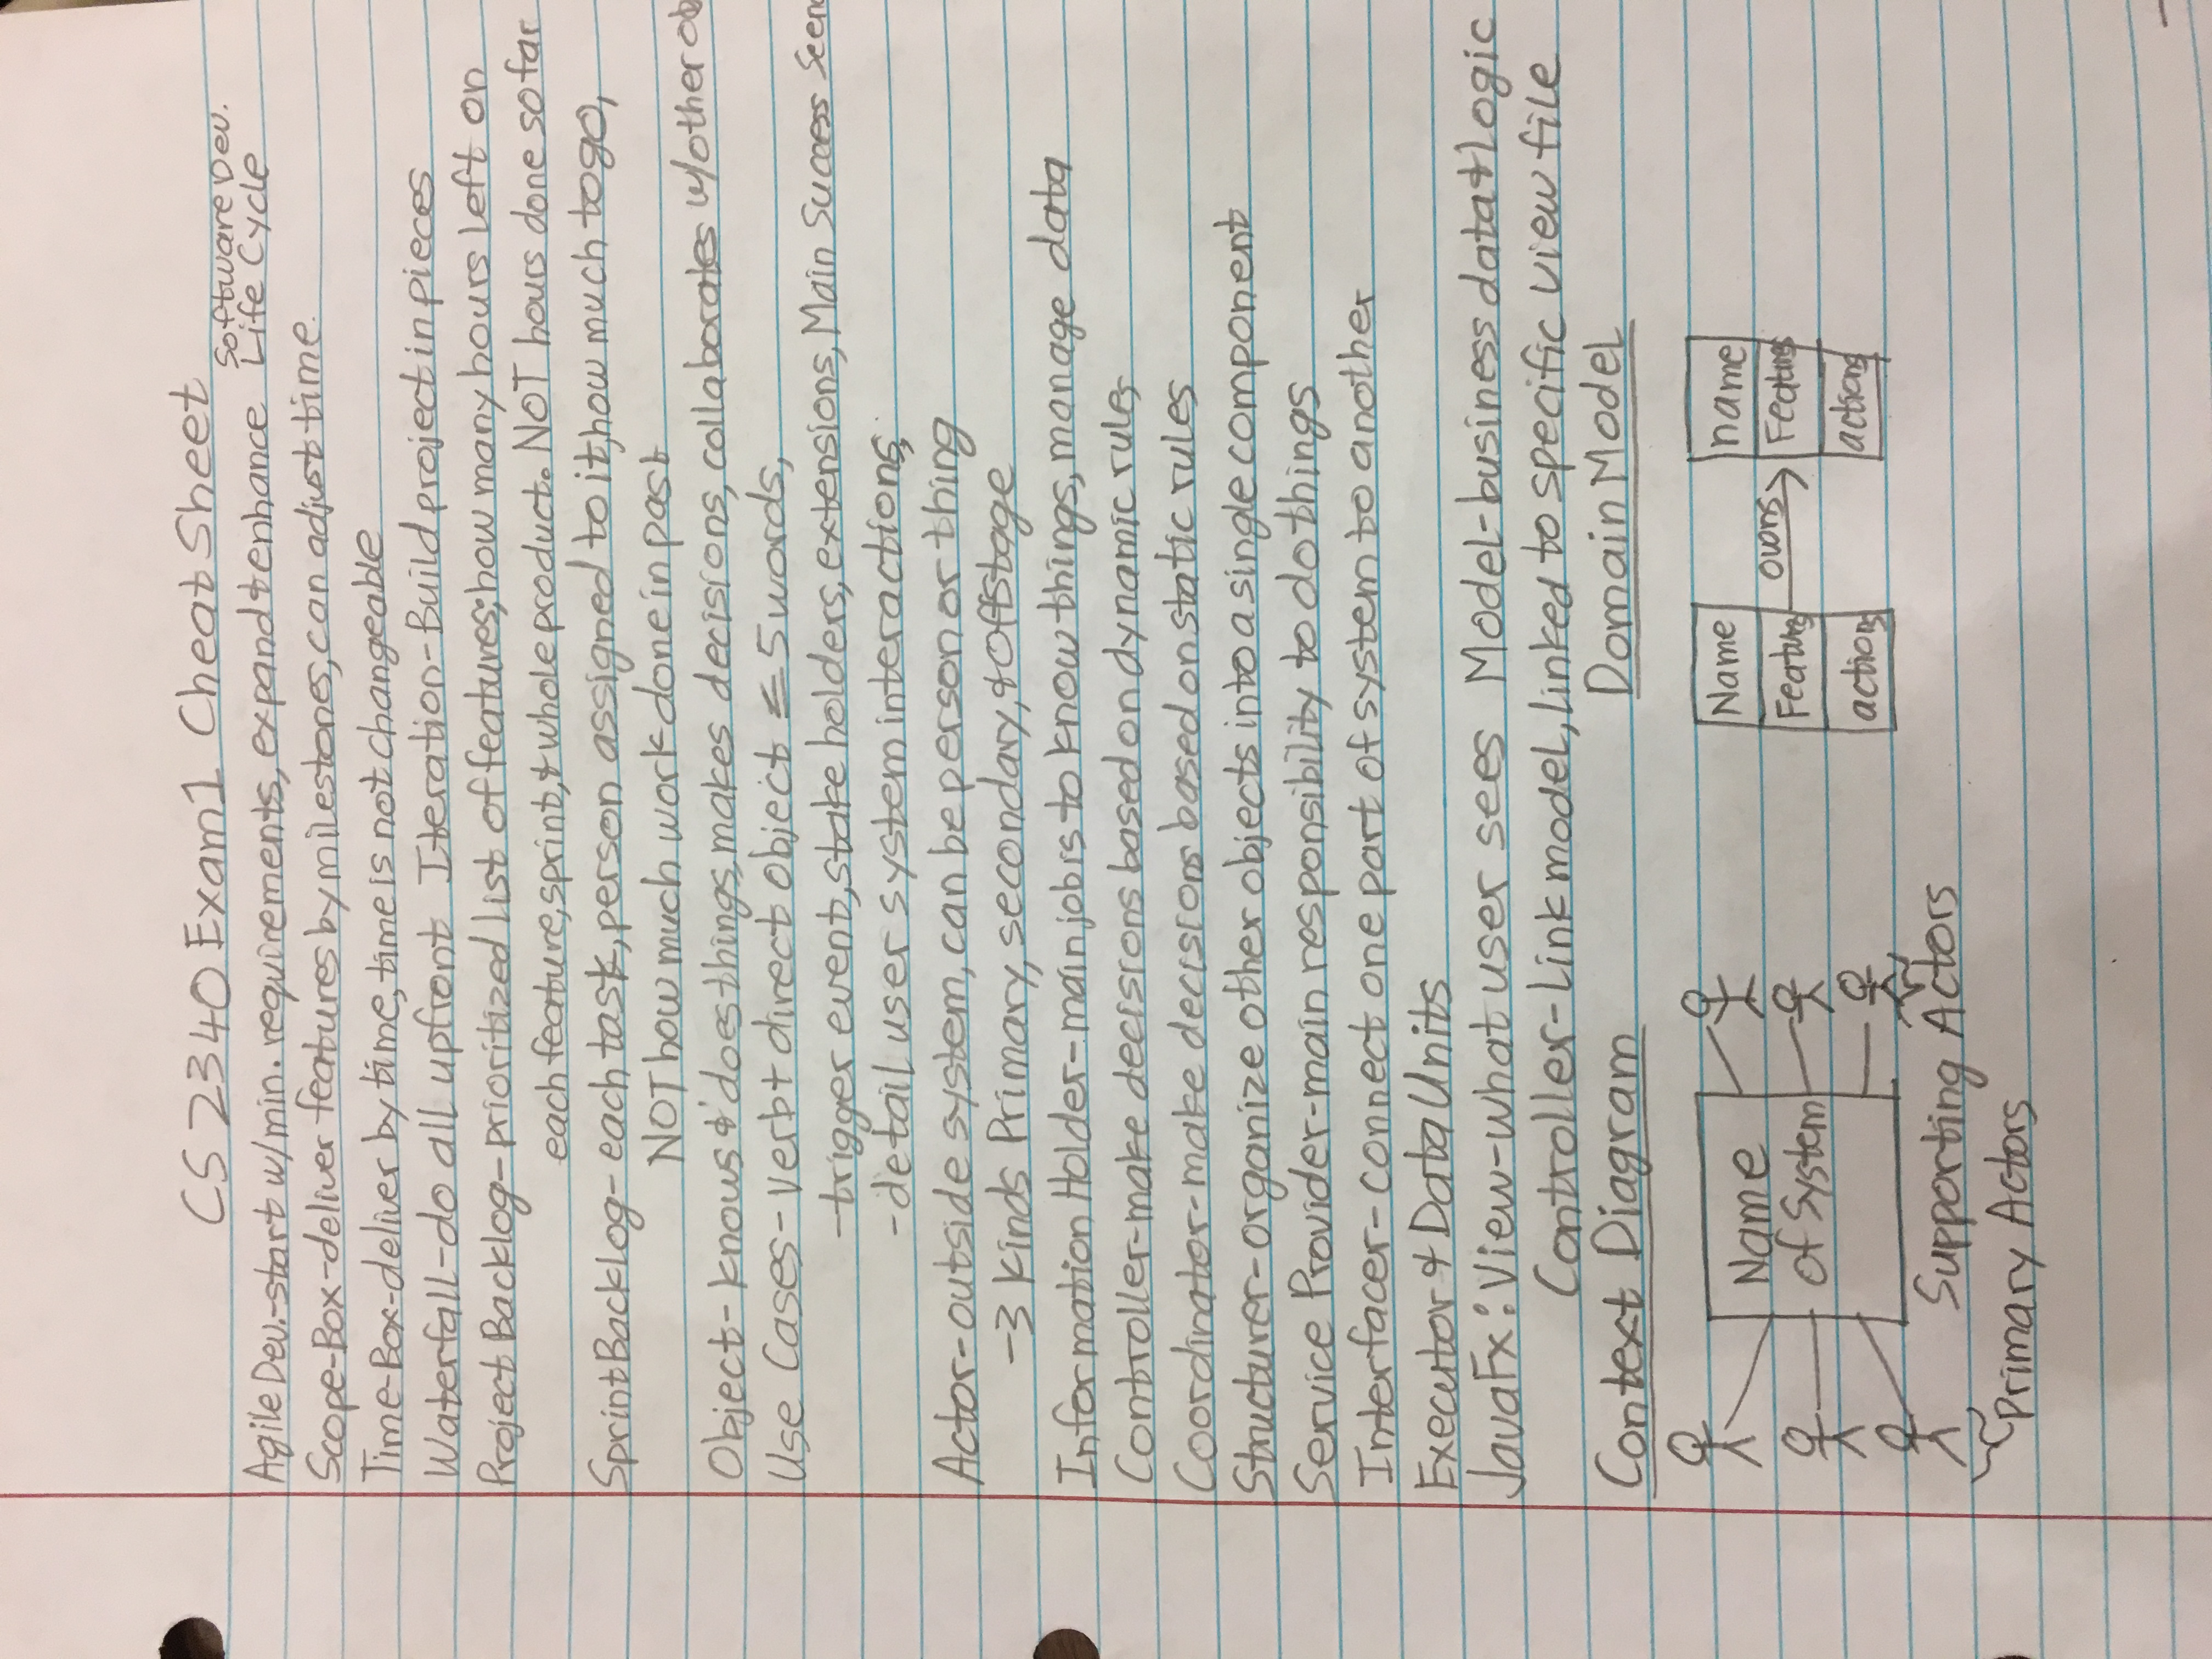 CS 2340 Exam1 Cheat Sheet
Software Dev.
Agile Dev.-start w/min. requirements, expand & enhance Life Cycle
Scope-Box-deliver features by milestones, can adjust time.
Time-Box-deliver by time, time is not changeable
Waterfall-do all upfront Iteration-Build project in pieces
Project Backlog-prioritized list of features; how many hours left on
each feature, sprint, & whole product. NOT hours done so far
Sprint Backlog-each task, person assigned to it, how much to go,
NOT how much work done in past
Object-knows & does things, makes decisions, collaborates w/other ob
Use Cases-verb+direct object ≤ 5 words,
-trigger event, stake holders, extensions, Main Success Seen
-detail user system interactions,
Actor-outside system, can be person or thing
-3 kinds Primary, secondary, & Offstage
Information Holder-main job is to know things, manage data
Controller-make decisions based on dynamic rules
Coordinator-make decisions based on static rules
Structurer-organize other objects into a single component
Service Provider-main responsibility to do things
Interfacer-connect one part of system to another
Executor & Data Units
JavaFx: View-what user sees Model-business data & logic
Controller-Link model, linked to specific view file
Context Diagram Domain Model
Name
of System
Supporting Actors
Primary Actors
Name
Features
actions
owns
name
Features
actions